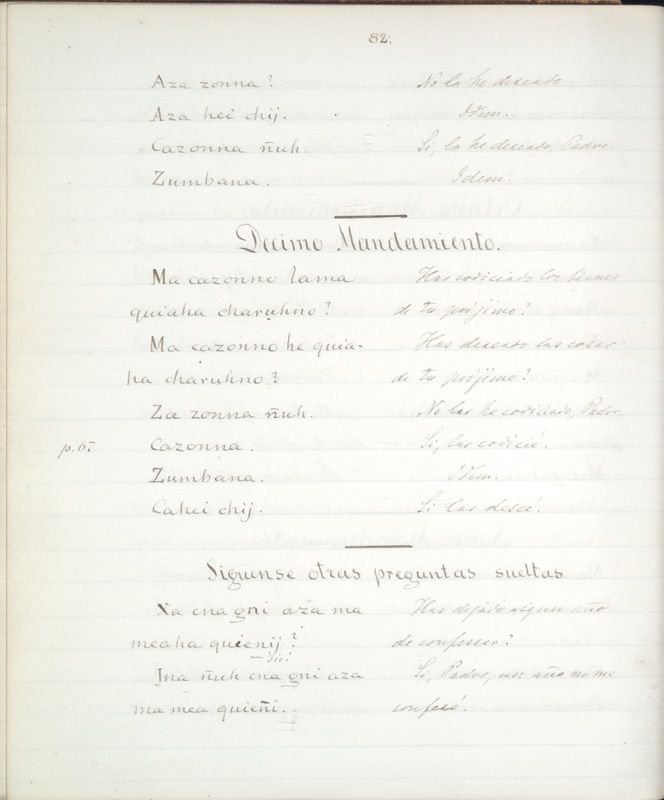 82.
Aza zonna? No lo he deseado.
Aza hei chij. Idem.
Cazonna ñuh. Si, lo he deseado, Padre.
Zumbana. Idem.
Decimo Mandamiento.
Ma cazonno lama Has codiciado los bienes
quiaha charuhno? de tu prójimo?
Ma cazonno he quia- Has deseado las cosas
ha charuhno? de tu prójimo?
Za zonna ñuh. No las he codiciado, Padre.
p. 67 Cazonna. Si, las codicié.
Zumbana. idem.
Cahei chij. Si las deseé.
Siguense otras preguntas sueltas.
Xa cna gni aza ma Has dejado algun año
meaha quienij? de confesar?
sic!
Jna ñuh cna gni aza Si, Padre, un año no me
ma mea quieñi. confesé.